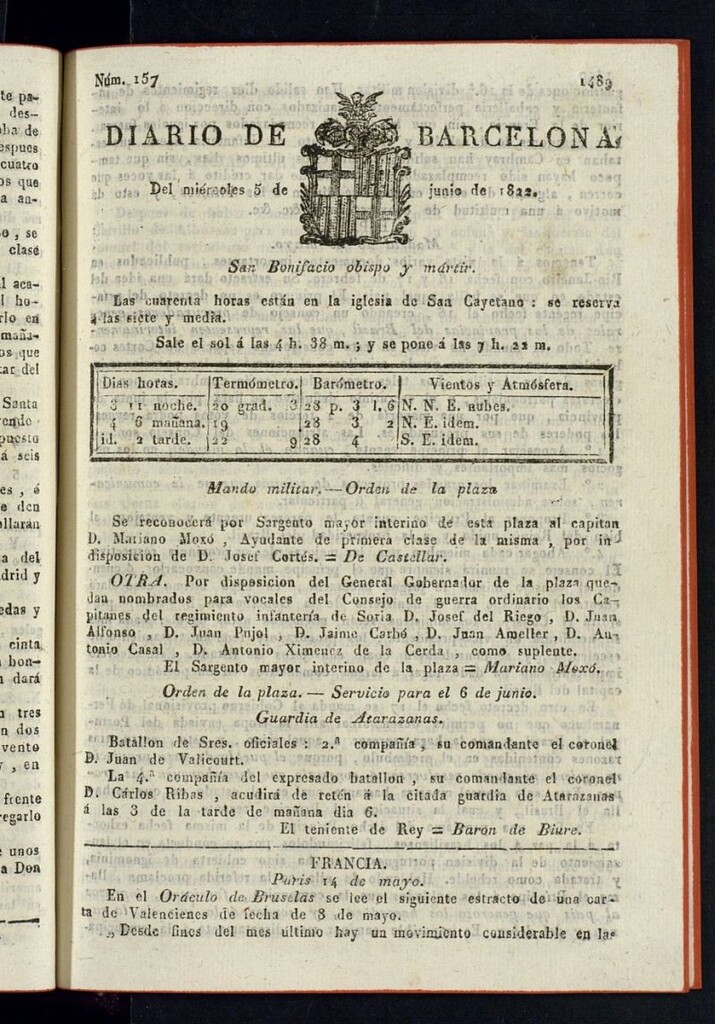 Núm. 157 1489
DIARIO DE BARCELONA,
Del miércoles 5 de junio de 1822.
San Bonifacio obispo y mártir.
Las cuarenta horas están en la iglesia de San Cayetano : se reserva
á las siete y media.
Sale el sol á las 4 h. 38 m. ; y se pone á las 7 h. 22 m.
Dias horas. Termómetro. Barómetro. Vientos y Atmósfera.
3 11 noche. 20 grad. 3 28 p. 3 l. 6 N. N. E. nubes.
4 6 mañana. 19 28 3 2 N. E. idem.
id. 2 tarde. 22 9 28 4 S. E. idem.
Mando militar. — Orden de la plaza
Se reconocerá por Sargento mayor interino de esta plaza al capitan
D. Mariano Moxó , Ayudante de primera clase de la misma , por in
disposicion de D. Josef Cortés. = De Castellar.
OTRA. Por disposicion del General Gobernador de la plaza que-
dan nombrados para vocales del Consejo de guerra ordinario los Ca-
pitanes del regimiento infantería de Soria D. Josef del Riego , D. Juan
Alfonso , D. Juan Pujol , D. Jaime Carbó , D. Juan Ameller , D. An-
tonio Casal , D. Antonio Ximenez de la Cerda , como suplente.
El Sargento mayor interino de la plaza = Mariano Moxó.
Orden de la plaza. — Servicio para el 6 de junio.
Guardia de Atarazanas.
Batallon de Sres. oficiales : 2.ª compañía , su comandante el coronel
D. Juan de Valicourt.
La 4.ª compañía del expresado batallon , su comandante el coronel
D. Cárlos Ribas , acudirá de retén á la citada guardia de Atarazanas
á las 3 de la tarde de mañana dia 6.
El teniente de Rey = Baron de Biure.
FRANCIA.
Paris 14 de mayo.
En el Oráculo de Bruselas se lee el siguiente estracto de una car-
ta de Valencienes de fecha de 8 de mayo.
„ Desde fines del mes último hay un movimiento considerable en las